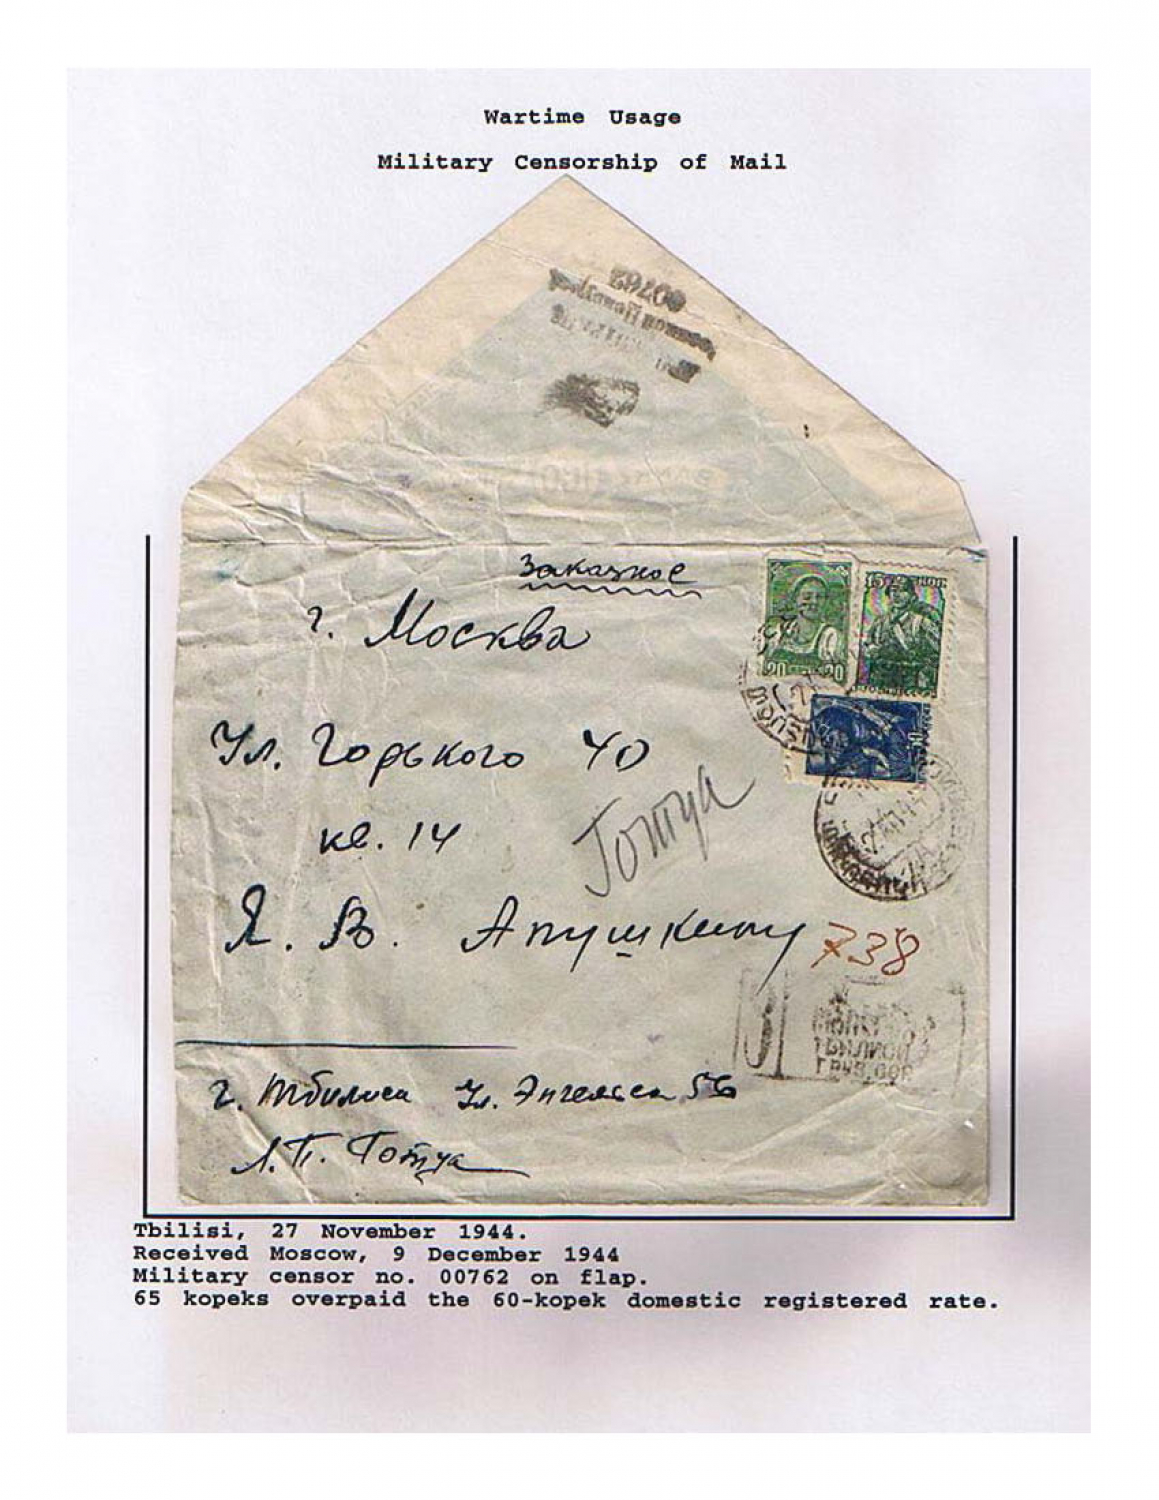 Wartime Usage
Military Censorship of Mail
00762
Военной Цензурой
Заказное
г. Москва
20 20
15 КОП
Ул. Горького 40
кв. 14
Готуа
Я. В. Апушкину
738
З
ТБИЛИСИ
г. Тбилиси Ул. Энгельса 56
Л. П. Готуа
Tbilisi, 27 November 1944.
Received Moscow, 9 December 1944
Military censor no. 00762 on flap.
65 kopeks overpaid the 60-kopek domestic registered rate.